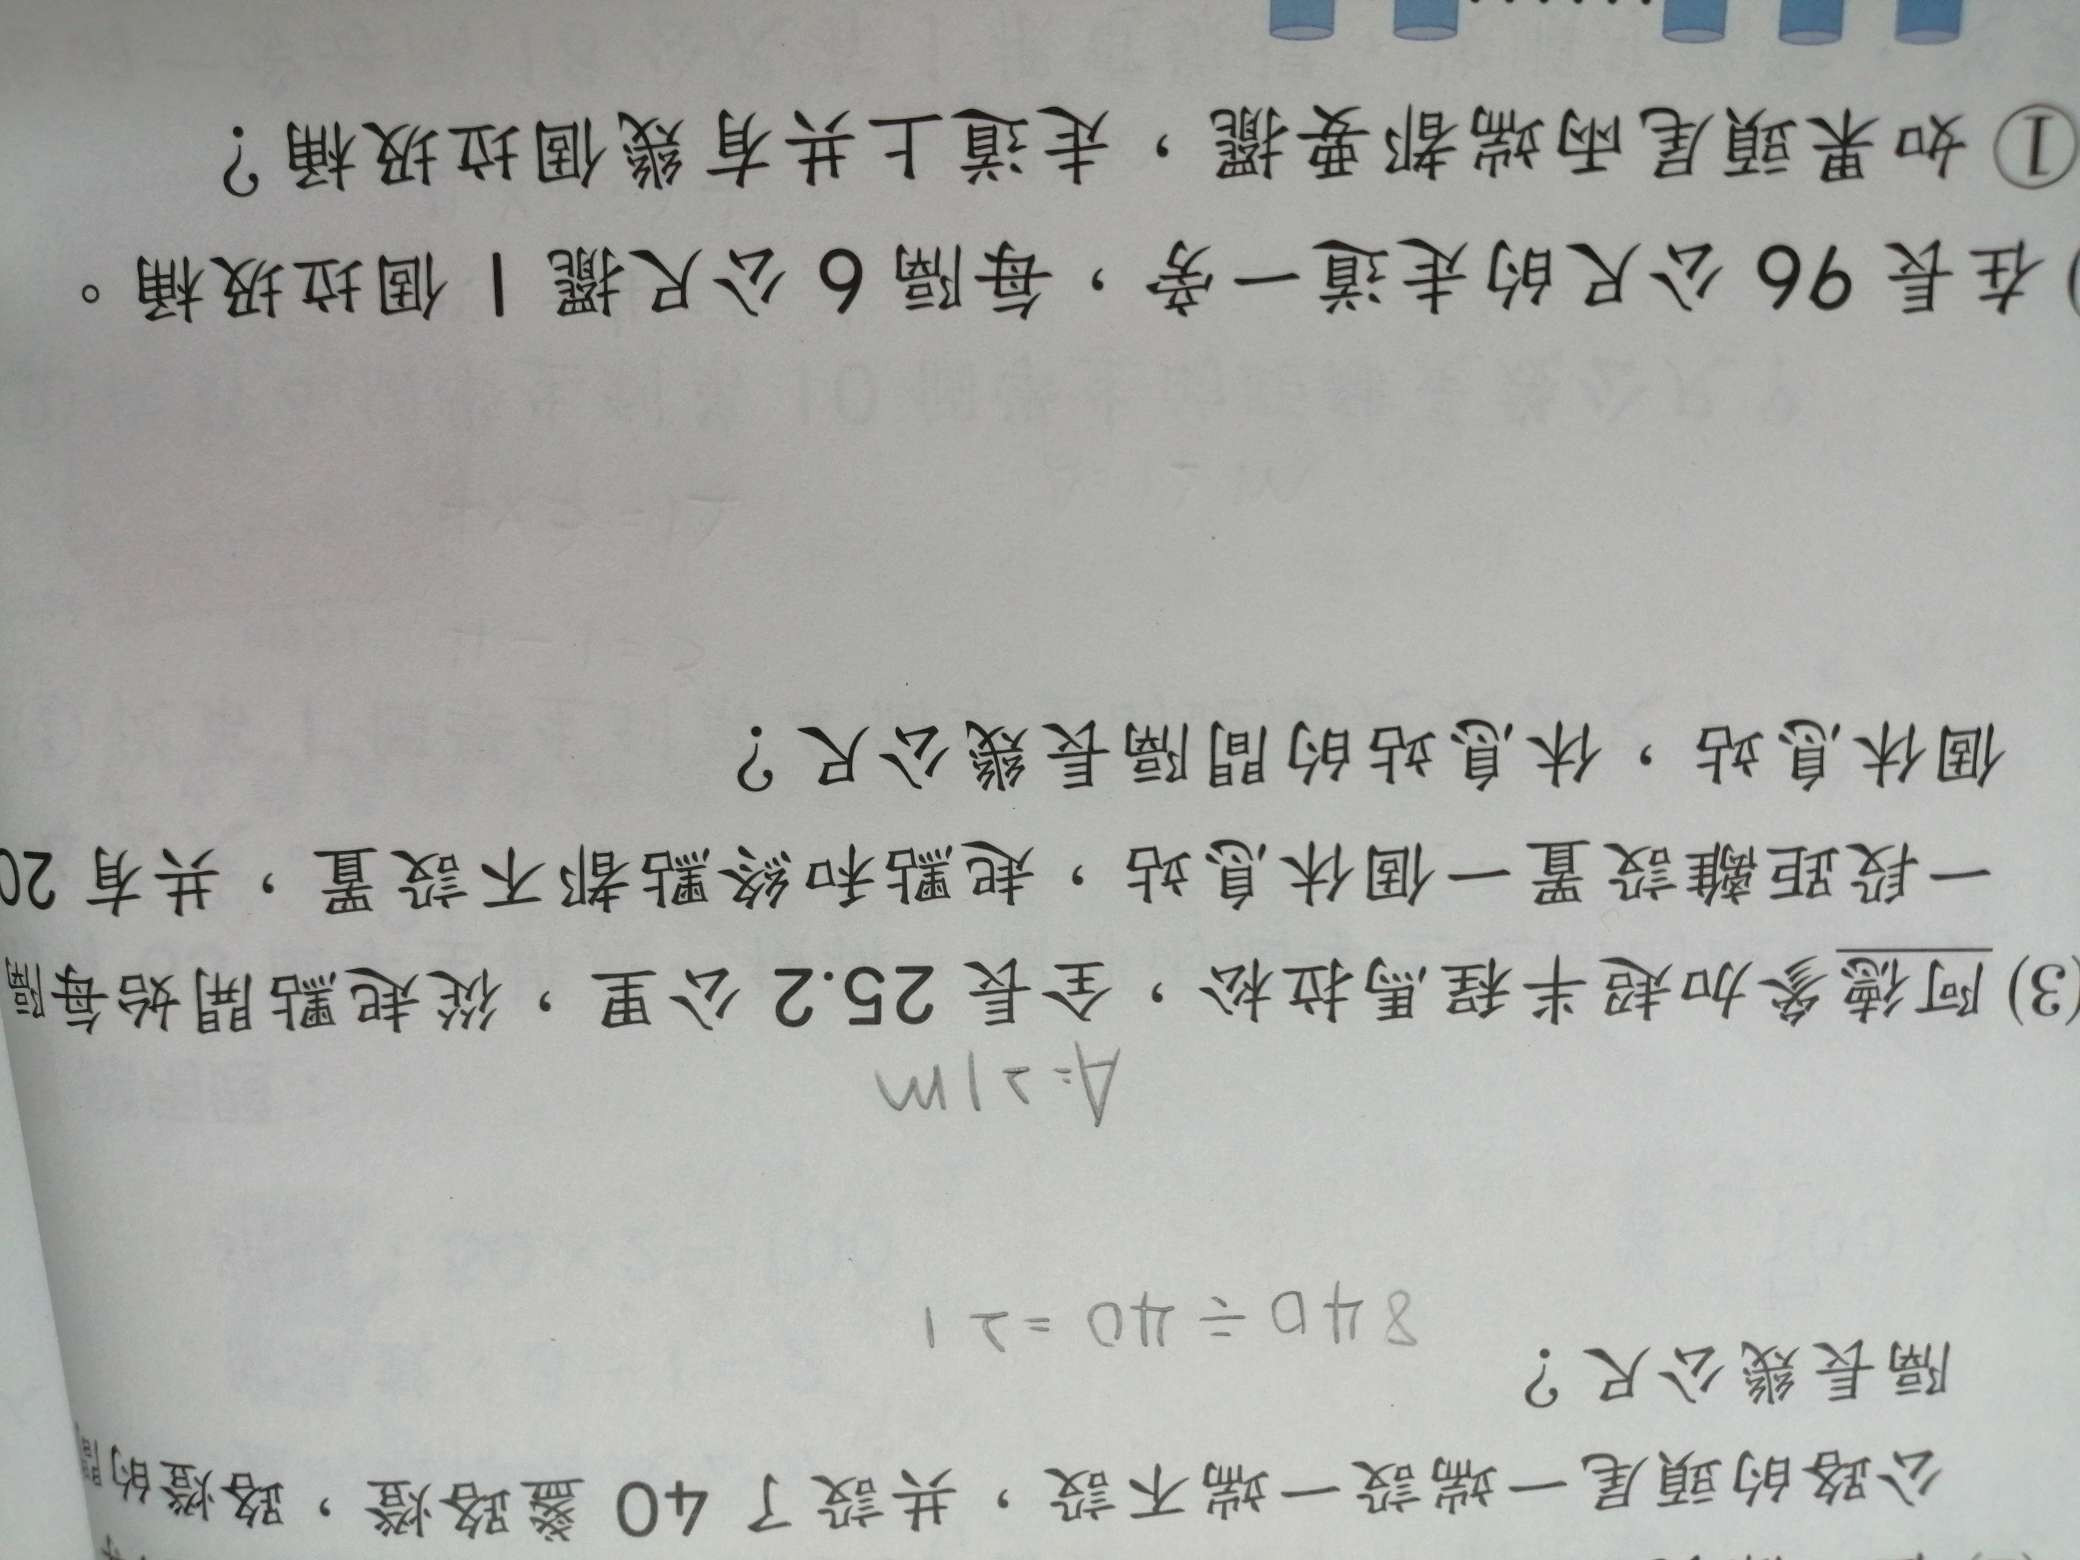 公路的頭尾一端設一端不設，共設了40盞路燈，路燈的間
隔長幾公尺？
840÷40=21
A=21m
(3)阿德參加超半程馬拉松，全長25.2公里，從起點開始每隔
一段距離設置一個休息站，起點和終點都不設置，共有20
個休息站，休息站的間隔長幾公尺？
)在長96公尺的走道一旁，每隔6公尺擺1個垃圾桶。
①如果頭尾兩端都要擺，走道上共有幾個垃圾桶？